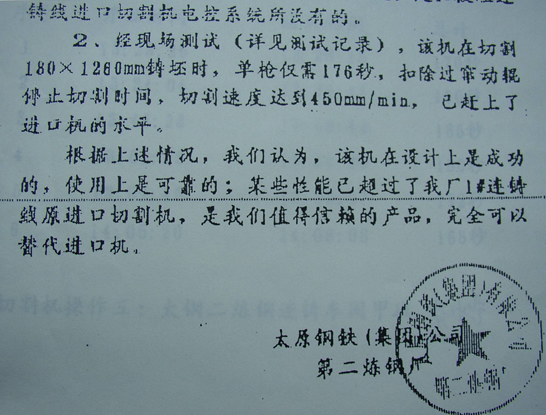 铸线进口切割机电控系统所没有的。
2、经现场测试(详见测试记录),该机在切割
180×1260mm铸坯时,单枪仅需176秒,扣除过窜动辊
停止切割时间,切割速度达到450mm/min,已赶上了
进口机的水平。
根据上述情况,我们认为,该机在设计上是成功
的,使用上是可靠的;某些性能已超过了我厂1#连铸
线原进口切割机,是我们值得信赖的产品,完全可以
替代进口机。
太原钢铁(集团)公司
第二炼钢厂